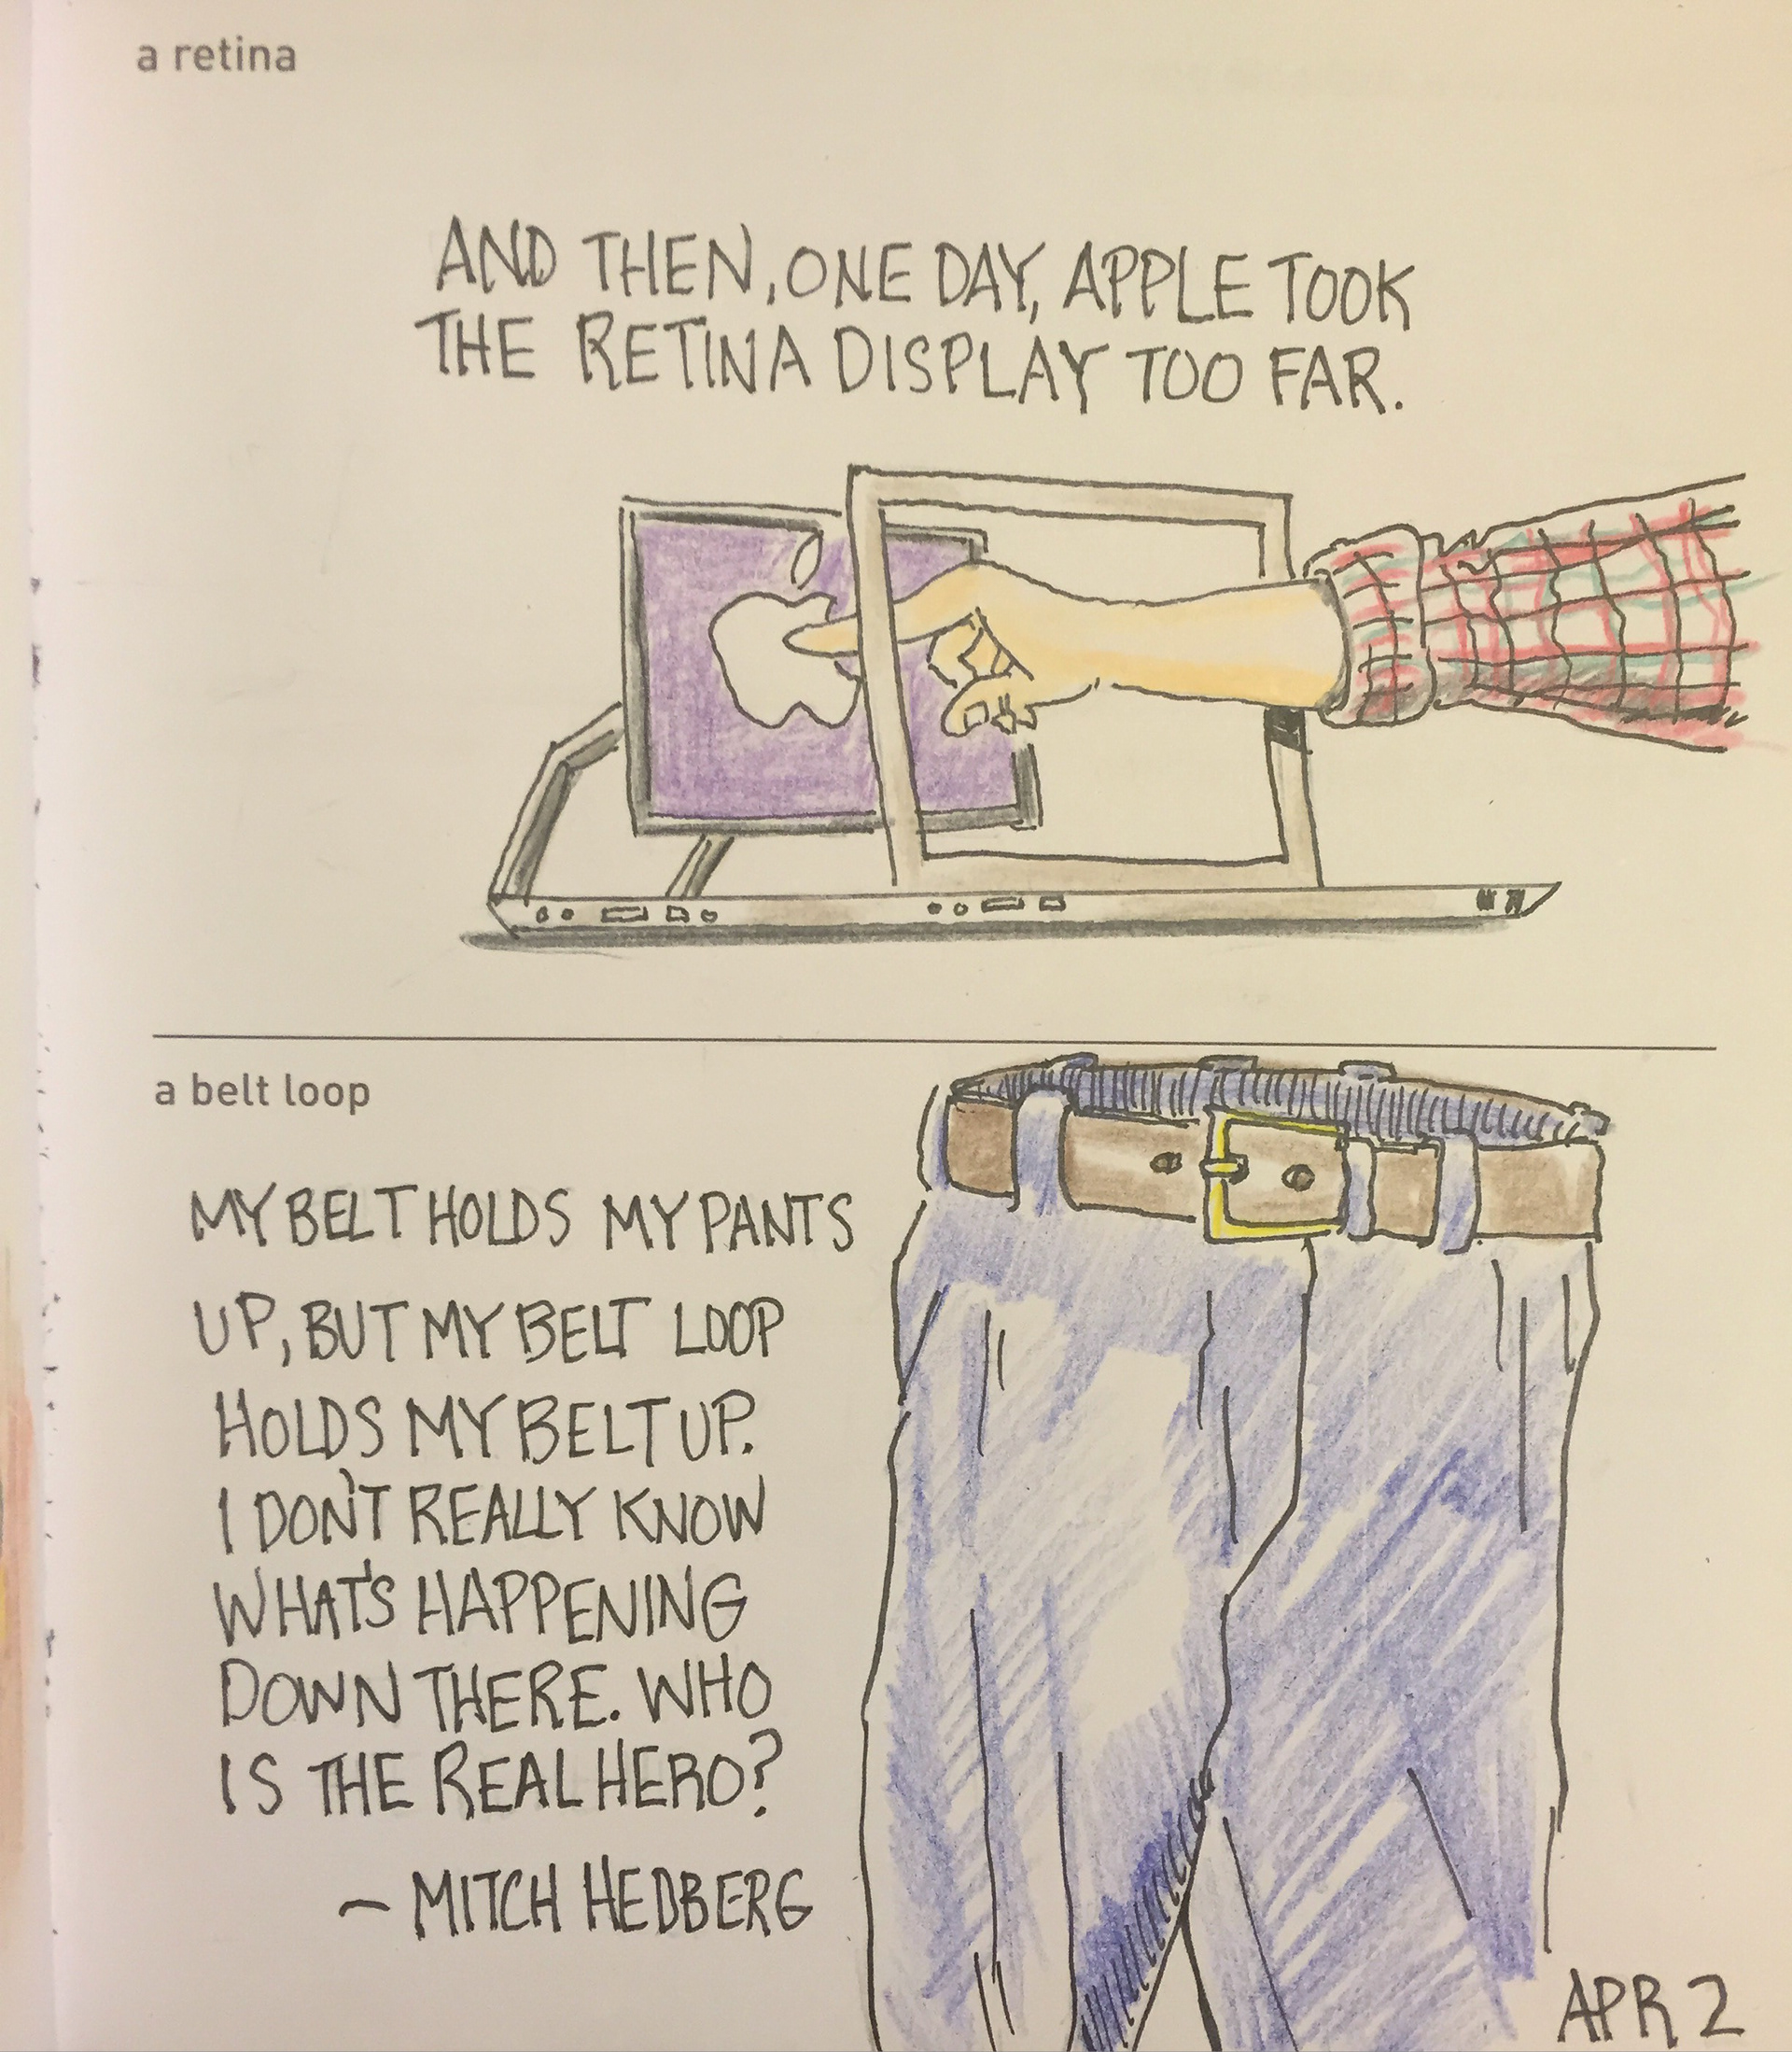 a retina
AND THEN, ONE DAY, APPLE TOOK
THE RETINA DISPLAY TOO FAR.
a belt loop
MY BELT HOLDS MY PANTS
UP, BUT MY BELT LOOP
HOLDS MY BELT UP.
I DON'T REALLY KNOW
WHAT'S HAPPENING
DOWN THERE. WHO
IS THE REAL HERO?
– MITCH HEDBERG
APR 2